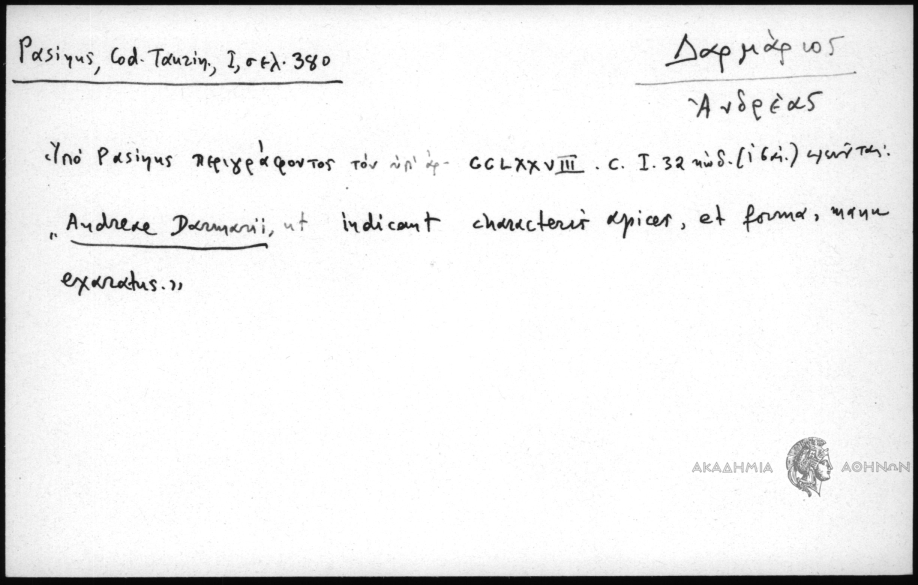 Pasinus, Cod. Taurin., I, σελ. 380
Δαρμάριος
Ἀνδρέας
Ὑπό Pasinus περιγράφοντος τόν ὑπ' ἀρ. CCLXXVIII. C. I. 32 κώδ.
„Andreae Darmarii, ut indicant characteris apices, et forma, manu
exaratus.»
ΑΚΑΔΗΜΙΑ ΑΘΗΝΩΝ